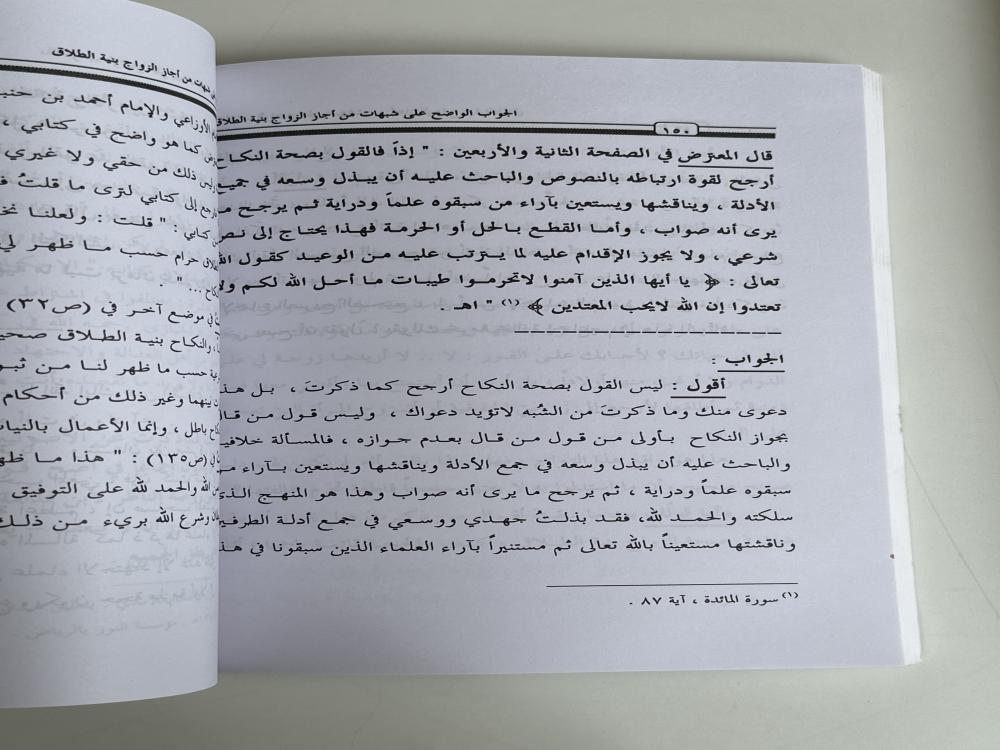 الجواب الواضح على شبهات من أجاز الزواج بنية الطلاق
١٥٠
قال المعترض في الصفحة الثانية والأربعين : " إذاً فالقول بصحة النكاح
أرجح لقوة ارتباطه بالنصوص والباحث عليه أن يبذل وسعه في جميع
الأدلة ، ويناقشها ويستعين بآراء من سبقوه علماً ودراية ثم يرجح
يرى أنه صواب ، وأما القطع بالحل أو الحرمة فهذا يحتاج إلى نص
شرعي ، ولا يجوز الإقدام عليه لما يترتب عليه من الوعيد كقول الله
تعالى : ﴿ يا أيها الذين آمنوا لاتحرموا طيبات ما أحل الله لكم ولا
تعتدوا إن الله لايحب المعتدين ﴾ (١) " اهـ .
الجواب :
أقول : ليس القول بصحة النكاح أرجح كما ذكرتَ ، بل هذا
دعوى منك وما ذكرتَ من الشُبه لاتؤيد دعواك ، وليس قول من قال
بجواز النكاح بأولى من قول من قال بعدم جوازه ، فالمسألة خلافية
والباحث عليه أن يبذل وسعه في جمع الأدلة ويناقشها ويستعين بـآراء
سبقوه علماً ودراية ، ثم يرجح ما يرى أنه صواب وهذا هو المنهج الذي
سلكته والحمد لله، فقد بذلتُ جهدي ووسعي في جمع أدلة الطرفين
وناقشتها مستعيناً بالله تعالى ثم مستنيراً بآراء العلماء الذين سبقونا في هذا
(١) سورة المائدة ، آية ٨٧ .
شبهات من أجاز الزواج بنية الطلاق
الأوزاعي والإمام أحمد بن
كما هو واضح في كتابي ،
وليس ذلك من حقي ولا غيري
فارجع إلى كتابي لترى ما قلتُ
كتابي : " قلت : ولعلنا
حرام حسب ما ظهر لي
..." .
في موضع آخر في (ص٣٢)
والنكاح بنية الطلاق صحيح
حسب ما ظهر لنا من
بينهما وغير ذلك من أحكام
باطل ، وإنما الأعمال بالنيات
في (ص١٣٥) : " هذا ما ظهر
الله والحمد لله على التوفيق
وشرع الله بريء من ذلك